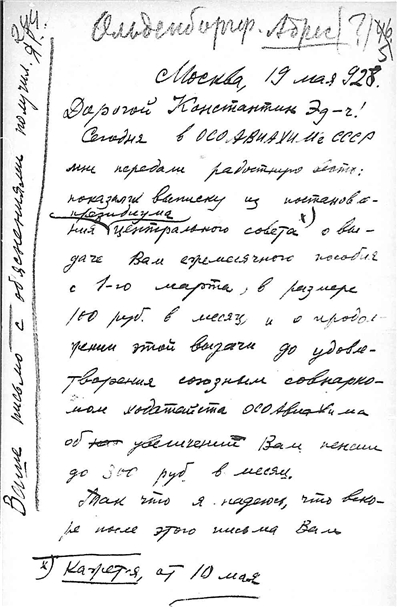 Ольденборгер. Адрес (?)
Москва, 19 мая 928.
Дорогой Константин Эд-ч!
Сегодня в ОСОАВИАХИМе СССР
мне передали радостную весть:
показали выписку из постановле-
президиума
ния центрального совета х) о вы-
даче Вам ежемесячного пособия
с 1-го марта, в размере
100 руб. в месяц и о продол-
жении этой выдачи до удовле-
творения союзным совнарко-
мом ходатайства ОСОАвиахима
об увеличении Вам пенсии
до 300 руб. в месяц.
Так что я надеюсь, что вско-
ре после этого письма Вам
х) Кажется, от 10 мая
Ваше письмо с объяснениями получил.